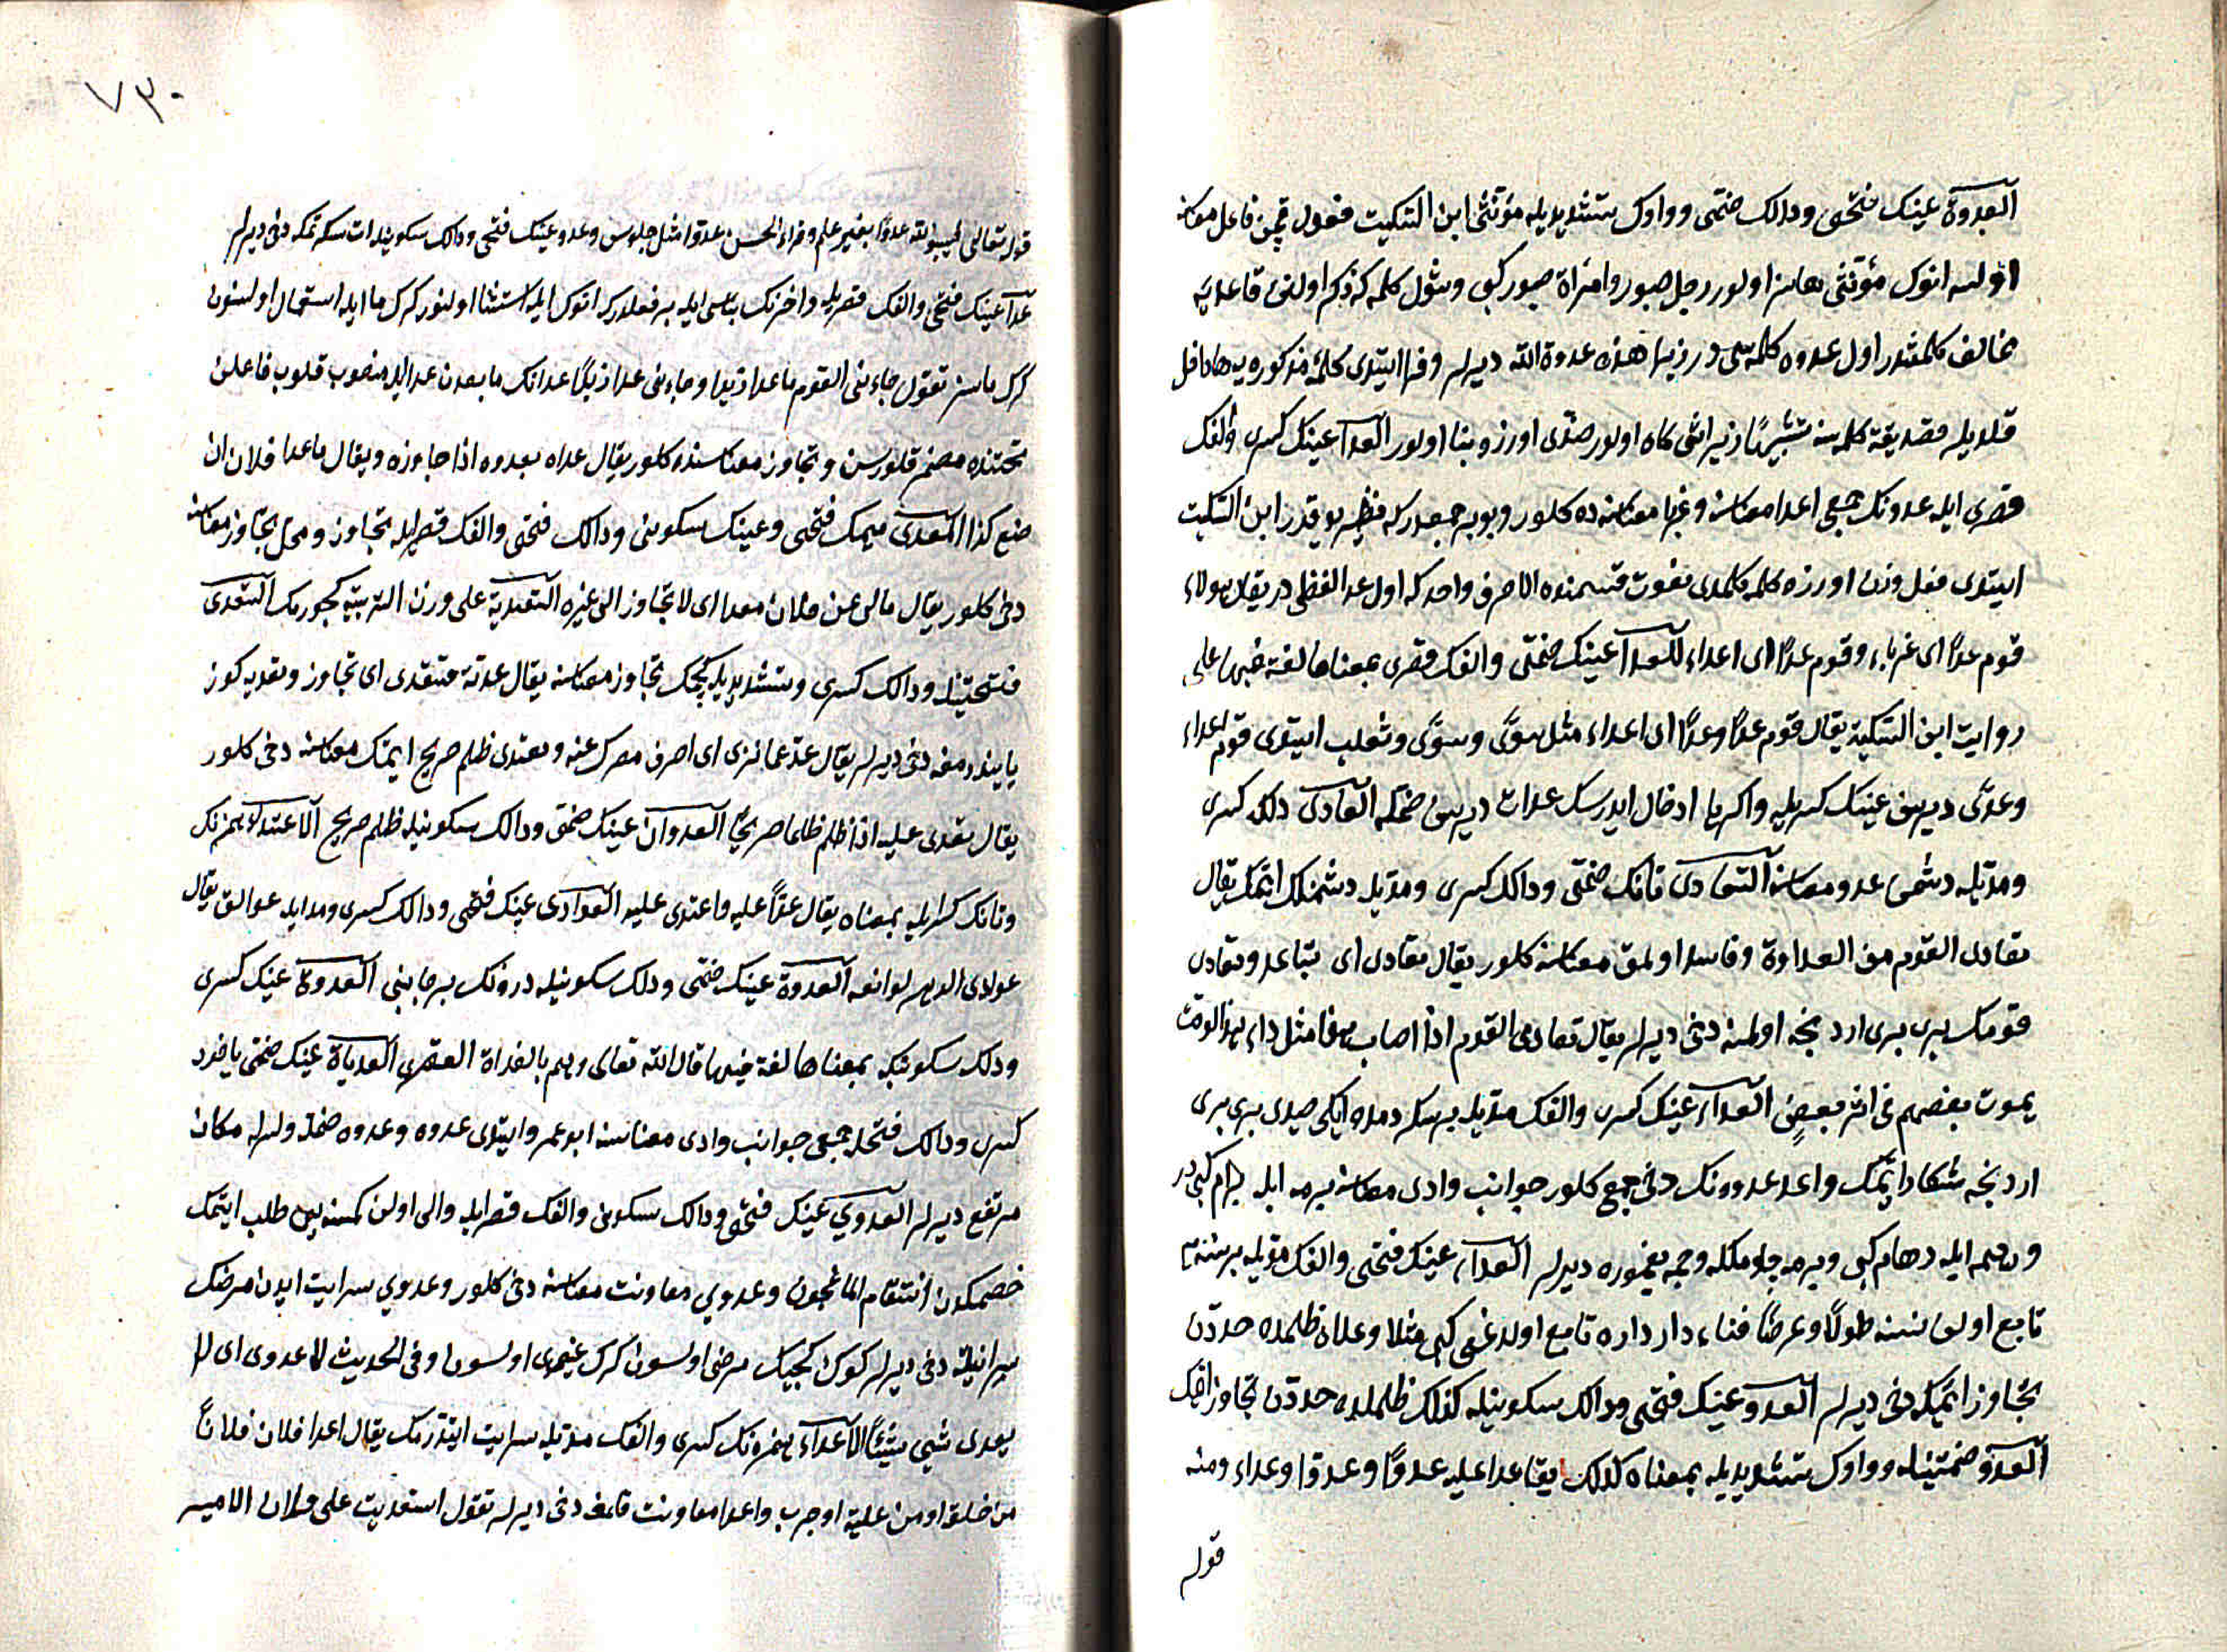 العدوة عينك فتحى ودالك ضمى وواوك تشديديله مؤنثى ابن السكيت فعول قچن فاعل معناسنه
اولسه انوك مؤنثى هاسز اولور رجل صبور وامرأة صبور كبى وشول كلمه كه ذكر اولنن قاعديه
مخالف كلمشدر اول عدوه كلمه سى در زيرا هذه عدوة الله ديرلر وفرا ايتدى كلمۀ مذكوره يه ها داخل
قلديلر صديقة كلمه سنه تشبيها زيرا شى كاه اولور ضدى اوزره بنا اولور العدا عينك كسرى والفك
قصرى ايله عدونك جمعى اعدا معناسنه وغربا معناسنه ده كلور وبو بر جمعدركه نظيرى يوقدر ابن السكيت
ايتدى فعل وزن اوزره كلمه كلمدى نعوت قسمنده الا حرف واحد كه اول عدا لفظى در يقال هولاء
قوم عدا اى غرباء وقوم عدا اى اعداء العدا عينك ضمى والفك قصرى بمعناها لغة فيها على
روايت ابن السكيت يقال قوم عدا وعدا اى اعداء مثل سوى وسوى وثعلب ايتدى قوم اعداء
وعدى ديرسن عينك كسريله واكر ها ادخال ايدرسك عدات ديرسن ضمله العادى دالك كسرى
ومديله دشمن عدو معناسنه التعادى تانك ضمى ودالك كسرى ومديله دشمنلك ايتمك يقال
تعادى القوم من العداوة وفاسد اولمق معناسنه كلور يقال تعادى اى تباعد وتعادى
قومك برى برى اردنجه اولمسنه دخى ديرلر يقال تعادى القوم اذا اصاب هذا مثل داء هذا او مت
يموت بعضهم فى اثر بعض العداء عينك كسرى والفك مديله بر سكردمده ايكى صيدى برى برى
اردنجه شكار ايتمك واعد عدوونك دخى جمع كلور جوانب وادى معناسنه برمه ايله برام كبى در
ورهمه ايله رهام كبى وبرمه چولمكله وجمه يغموره ديرلر العداء عينك فتحى والفك مديله بر نسنه يه
تابع اولن نسنه طولا وعرضا فناء دار داره تابع اولدغى كبى مثلا وعداء ظلمده حددن
تجاوز ايتمكه دخى ديرلر العدو عينك فتحى ودالك سكونيله كذلك ظلمده حددن تجاوز ايتمك
العدو ضمتينله وواوك تشديديله بمعناه كذلك يقا عدا عليه عدوا وعدوا وعداء ومنه
قوله
٧٣٠
قوله تعالى فيسبوا الله عدوا بغير علم وقراء الحسن عدوا مثل جلوس وعدو عينك فتحى ودالك سكونيله ات سكرتمكه دخى ديرلر
عدا عينك فتحى والفك قصريله واخرنك بناسى ايله بر فعلدركه انوك ايله استثنا اولنور كرك ما ايله استعمال اولسون
كرك ماسز تقول جاءنى القوم ما عدا زيدا وجاءنى عدا زيدا عدانك ما بعدن عدا ايله منصوب قلوب فاعلن
تحتنده مضمر قلورسن وتجاوز معناسنده كلور يقال عداه يعدوه اذا جاوزه ويقال ما عدا فلان ان
صنع كذا المعدى ميمك فتحى وعينك سكونى ودالك فتحى والفك قصريله تجاوز ومحل تجاوز معناسنه
دخى كلور يقال مالى عن فلان معدا اى لا تجاوز الى غيره التعدية على وزن التربية كچورمك التعدى
فتحتينله ودالك كسرى وتشديديله كچمك تجاوز معناسنه يقال عدته فتعدى اى تجاوز وتعديه كوز
يا يندرمغه دخى ديرلر يقال عد عما ترى اى اصرف بصرك عنه وتعدى ظلم صريح ايتمك معناسنه دخى كلور
يقال تعدى عليه اذا ظلم ظلما صريحا العدوان عينك ضمى ودالك سكونيله ظلم صريح الاعتداء همزنك
وتانك كسريله بمعناه يقال عدا عليه واعتدى عليه العوادى عينك فتحى ودالك كسرى ومد ايله عوائق يقال
عوادى الدهر لوائعه العدوة عينك ضمى ودالك سكونيله درونك بر جانبى العدوة عينك كسرى
ودالك سكونيله بمعناها لغة فيها قال الله تعالى وهم بالعدوة القصوى العدياة عينك ضمى ياخود
كسرى ودالك فتحله جمعى جوانب وادى معناسنه ابو عمرو ايتدى عدوه وعدوه ضمله وكسرله مكان
مرتفع ديرلر العدوي عينك فتحى ودالك سكونى والفك قصرايله والى اولن كمسنه يى طلب ايتمك
خصمكدن انتقام المغچون وعدوي معاونت معناسنه دخى كلور وعدوي سرايت ايدن مرضك
سرايتنه دخى ديرلر كوك كچيك مرضى اولسون كرك غيرى اولسون وفى الحديث لا عدوى اى لا
يعدى شيى شيئا الاعداء همزه نك كسرى والفك مديله سرايت ايتدرمك يقال اعدا فلان فلانا
من خلقه او من علية او جرب واعدا معاونت قلمغه دخى ديرلر تقول استعديت على فلان الامير